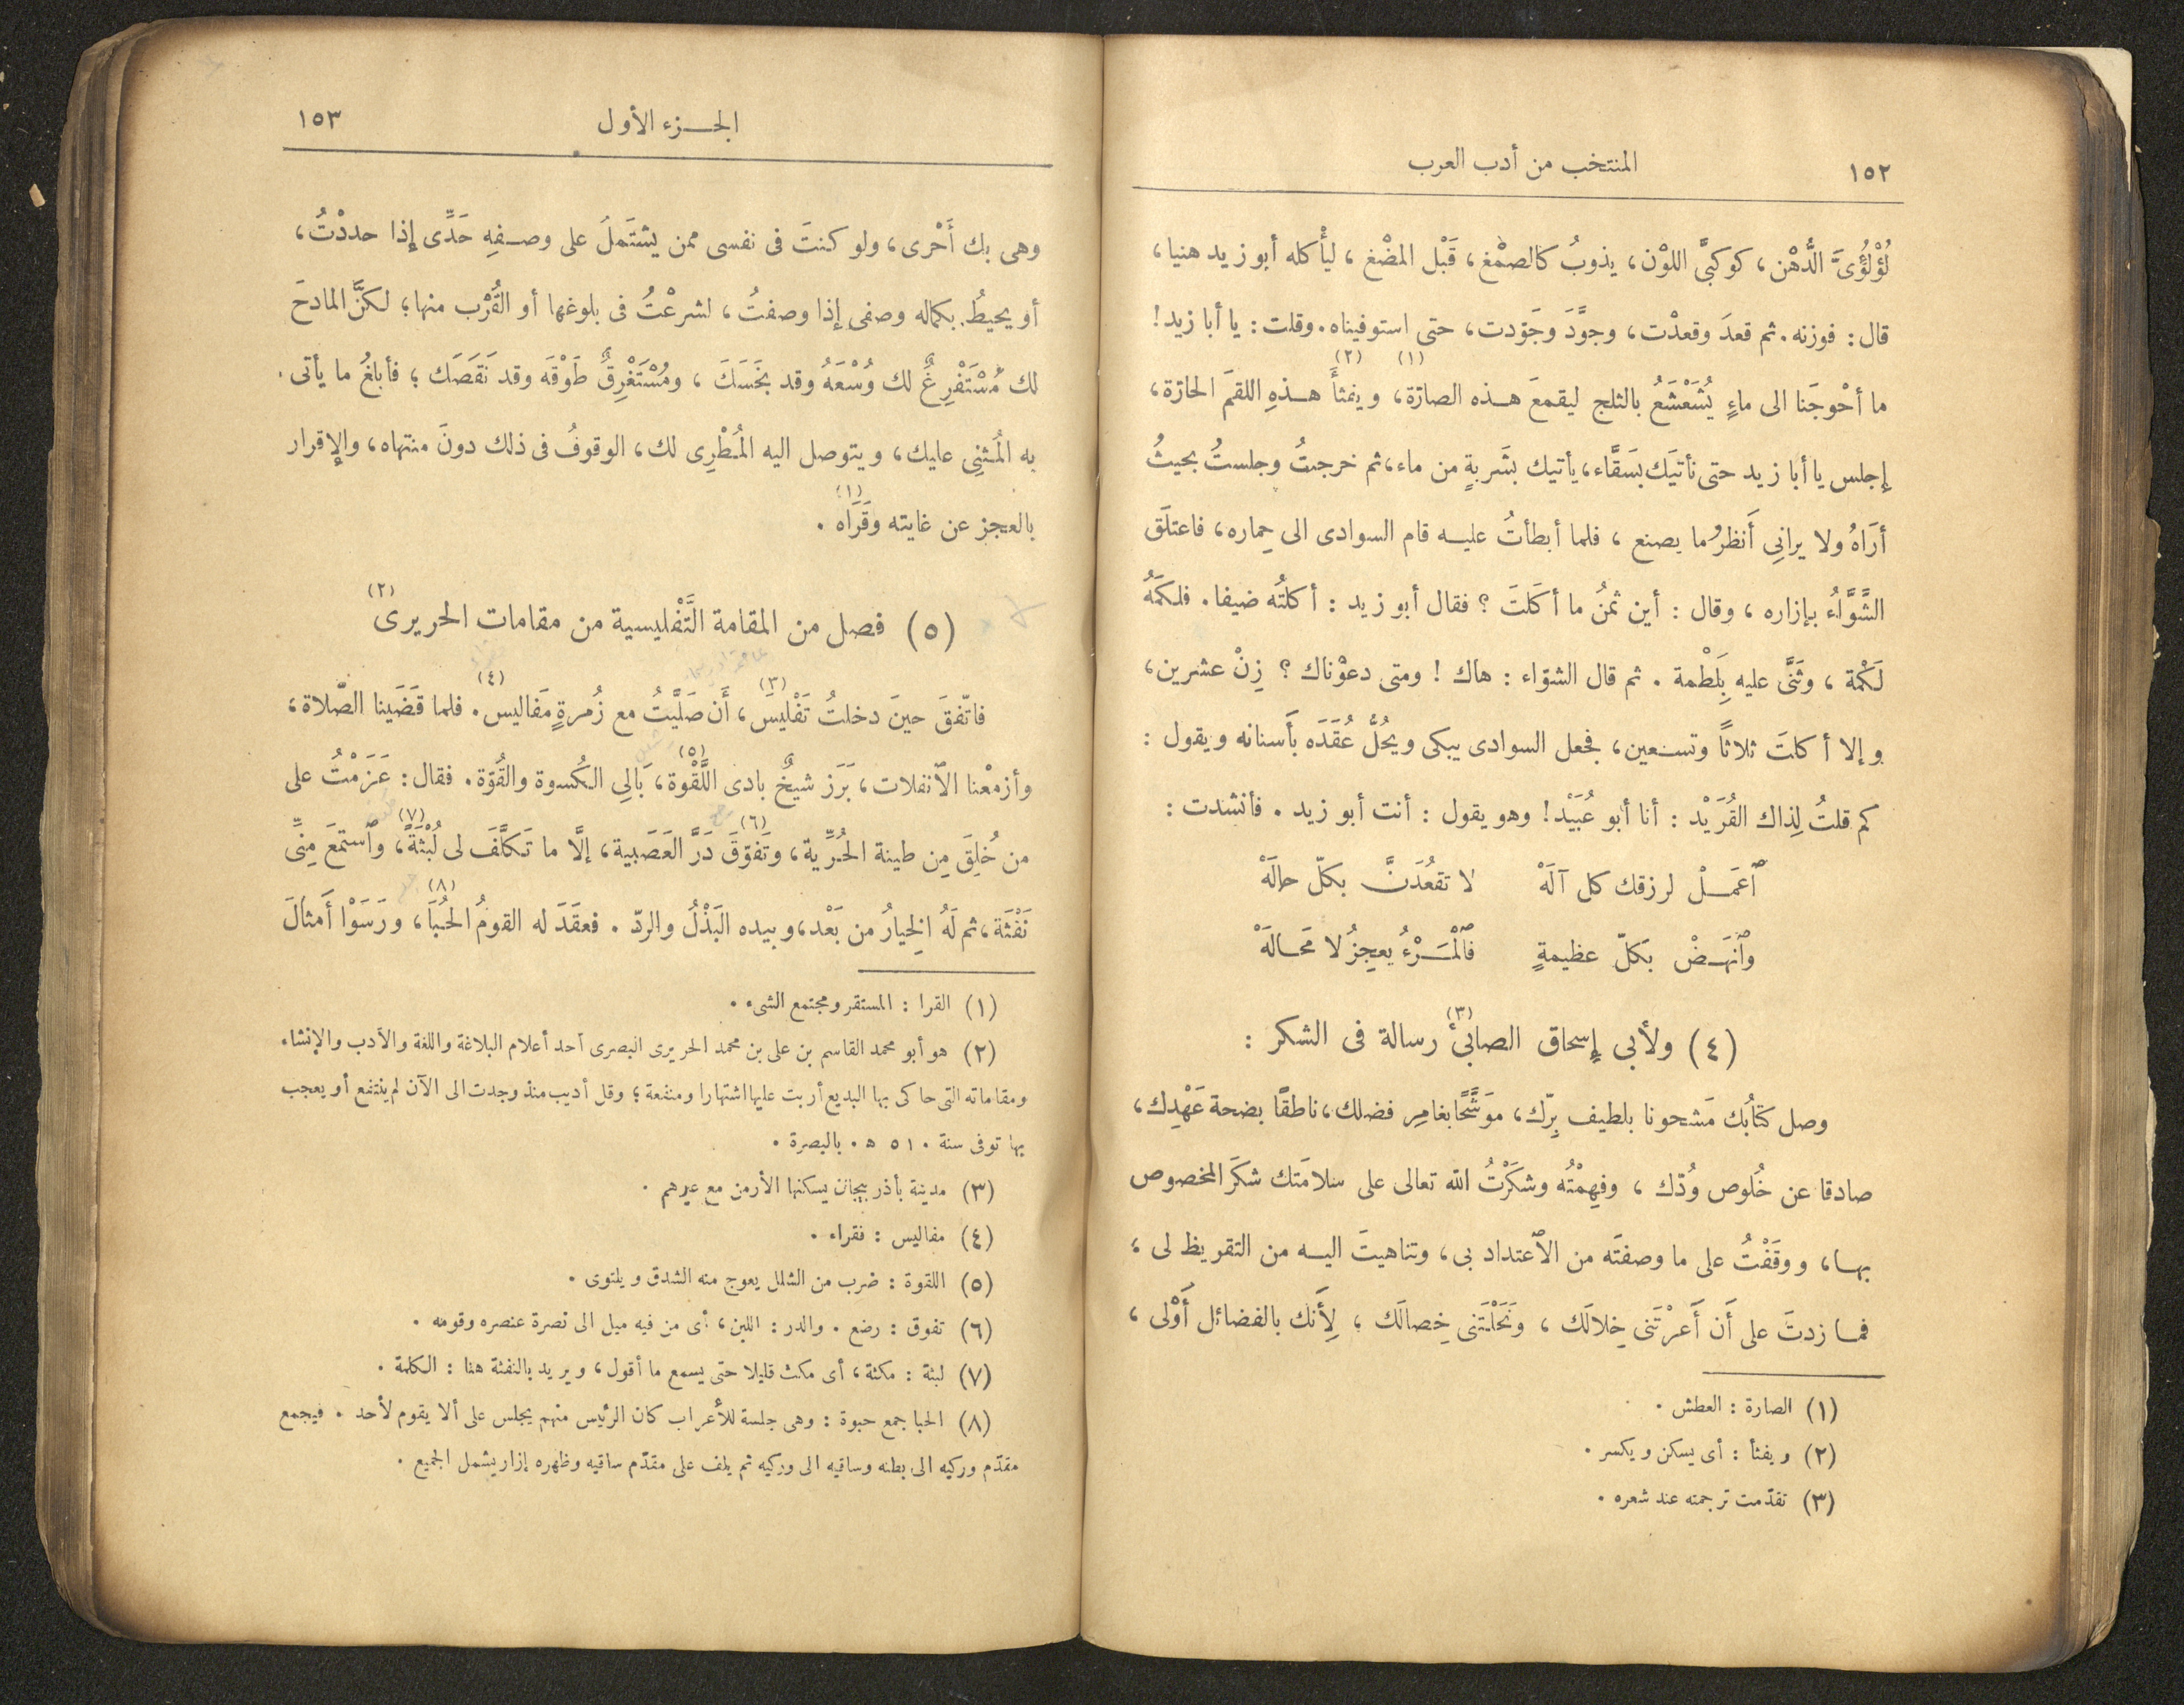 ١٥٢
المنتخب من أدب العرب
لُؤْلُؤِىَّ الدُّهْن، كوكبىَّ اللوْن، يذوبُ كالصمْغ، قَبْل المضْغ، ليأْكله أبو زيد هنيا،
قال: فوزنه. ثم قعدَ وقعدْت، وجوَّدَ وجَوّدت، حتى استوفيناه. وقلت: يا أبا زيد!
ما أحْوجَنا الى ماءٍ يُشَعْشَعُ بالثلج ليقمعَ هـذه الصارّة (١)، ويفثأَ (٢) هـذهِ اللقمَ الحارّة،
إجلس يا أبا زيد حتى نأتيَك بسَقَّاء، يأتيك بشَربةٍ من ماء، ثم خرجتُ وجلستُ بحيثُ
أرَاهُ ولا يرانِى أَنظرُ ما يصنع، فلما أبطأتُ عليـه قام السوادى الى حِماره، فاعتلَق
الشَّوَّاءُ بإزاره، وقال: أين ثمنُ ما أكَلتَ؟ فقال أبو زيد: أكلتُه ضيفا. فلكمَهُ
لَكْمة، وثَنَّى عليه بِلَطْمة. ثم قال الشوّاء: هاك! ومتى دعوْناك؟ زِنْ عشرين،
وإلا أكلتَ ثلاثاً وتسـعين، فجعل السوادى يبكى ويحُلُّ عُقَدَه بأَسنانه ويقول:
كم قلتُ لِذاك القُرَيْد: أنا أبو عُبَيْد! وهو يقول: أنت أبو زيد. فأنشدت:
ٱعمَـلْ لرزقك كل آلَهْ لا تقعُدَنَّ بكلّ حالَهْ
وٱنهَـضْ بكلّ عظيمةٍ فالْمَـرْءُ يعجِزُ لا مَحـالَهْ
(٤) ولأبى إسحاق الصابئ (٣) رسالة فى الشكر:
وصل كتابُك مَشحونا بلطيف بِرّك، موَشَّحًا بغامِر فضلك، ناطقًا بضحة عَهْدِك،
صادقا عن خُلوص وُدّك، وفهِمْتُه وشكَرْتُ الله تعالى على سلامَتك شكرَ المخصوص
بهـا، ووقَفْتُ على ما وصفتَه من الٱعتداد بى، وتناهيتَ اليـه من التقريظ لى؛
فمـا زدتَ على أَن أَعرْتَنى خِلالَك، ونَحَلْتَنى خِصالَك؛ لِأَنك بالفضائل أَوْلى،
(١) الصارة: العطش.
(٢) ويفثأ: أى يسكن ويكسر.
(٣) تقدّمت ترجمته عند شعره.
الجـزء الأول
١٥٣
وهى بك أَحْرى، ولو كنتَ فى نفسى ممن يشتَملَ على وصـفِهِ حَدِّى إذا حددْتُ،
أو يحيطُ بكماله وصفى إذا وصفتُ، لشرعْتُ فى بلوغها أو القُرْب منها؛ لكنَّ المادحَ
لك مُسْتَفْرِغٌ لك وُسْعَهُ وقد بخَسَكَ، ومُسْتَغْرِقٌ طَوْقَه وقد نَقَصَك؛ فأبلغُ ما يأتى
به المُثنِى عليك، ويتوصل اليه المُطْرِى لك، الوقوفُ فى ذلك دونَ منتهاه، والإقرار
بالعجز عن غايته وقَرَاه (١).
(٥) فصل من المقامة التَّفْليسية من مقامات الحريرى (٢)
فاتّفقَ حينَ دخلتُ تَفْليسَ (٣)، أَن صَلَّيتُ مع زُمرةٍ مَفاليس (٤). فلما قَضَينا الصَّلاة،
وأزمعْنا الٱنفلات، بَرَز شيخٌ بادى اللَّقْوة (٥)، بَالِى الكُسوة والقُوّة. فقال: عَزَمْتُ على
من خُلِقَ مِن طينة الحُرِّية، وتَفوّقَ (٦) دَرَّ العَصَبية، إلَّا ما تَكلَّفَ لى لُبْثَةً (٧)، وٱستَمعَ مِنِّى
نَفْثَة، ثم لَهُ الخِيارُ من بَعْد، وبيده البَذْلُ والردّ. فعقَدَ له القومُ الحُبَا (٨)، ورَسَوْا أَمثالَ
(١) القرا: المستقر ومجتمع الشىء.
(٢) هو أبو محمد القاسم بن على بن محمد الحريرى البصرى أحد أعلام البلاغة واللغة والأدب والإنشاء
ومقاماته التى حاكى بها البديع أربت عليها اشتهارا ومنفعة؛ وقل أديب منذ وجدت الى الآن لم ينتفع أو يعجب
بها توفى سنة ٥١٠ ه. بالبصرة.
(٣) مدينة بأذربيجان يسكنها الأرمن مع غيرهم.
(٤) مفاليس: فقراء.
(٥) اللقوة: ضرب من الشلل يعوج منه الشدق ويلتوى.
(٦) تفوق: رضع. والدر: اللبن، أى من فيه ميل الى نصرة عنصره وقومه.
(٧) لبثة: مكثة، أى مكث قليلا حتى يسمع ما أقول، ويريد بالنفثة هنا: الكلمة.
(٨) الحبا جمع حبوة: وهى جلسة للأعراب كان الرئيس منهم يجلس على ألا يقوم لأحد. فيجمع
مقدّم وركيه الى بطنه وساقيه الى وركيه ثم يلف على مقدّم ساقيه وظهره إزار يشمل الجميع.